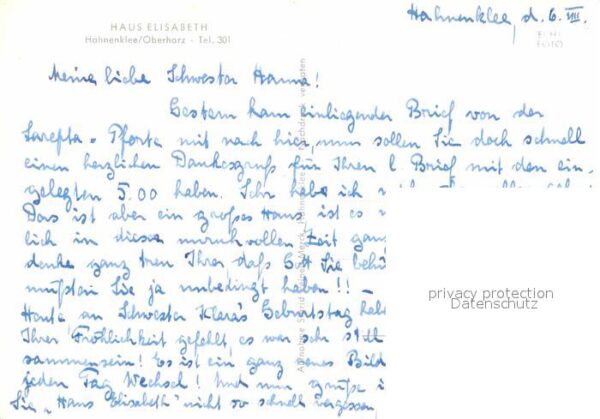 HAUS ELISABETH
Hahnenklee/Oberharz - Tel. 301
Hahnenklee, d. 6. VIII.
Meine liebe Schwester Hanna!
Gestern kam einliegender Brief von der
Sarepta-Pforte mit nach hier, nun sollen Sie doch schnell
einen herzlichen Dankesgruß für Ihren l. Brief mit den ein-
gelegten 5.00 haben. Sehr habe ich
Das ist aber ein großes Haus ist es
lich in dieser unruhvollen Zeit ganz
denke ganz treu Ihrer daß Gott Sie behü
mußten Sie ja unbedingt haben!! -
Heute an Schwester Klara's Geburtstag hat
Ihre Fröhlichkeit gefehlt, es war sehr still
sammensein! Es ist ein ganz neues Bild
jeden Tag Wechsel! Und nun grüße i
Sie "Haus Elisabeth" nicht so schnell vergessen
privacy protection
Datenschutz